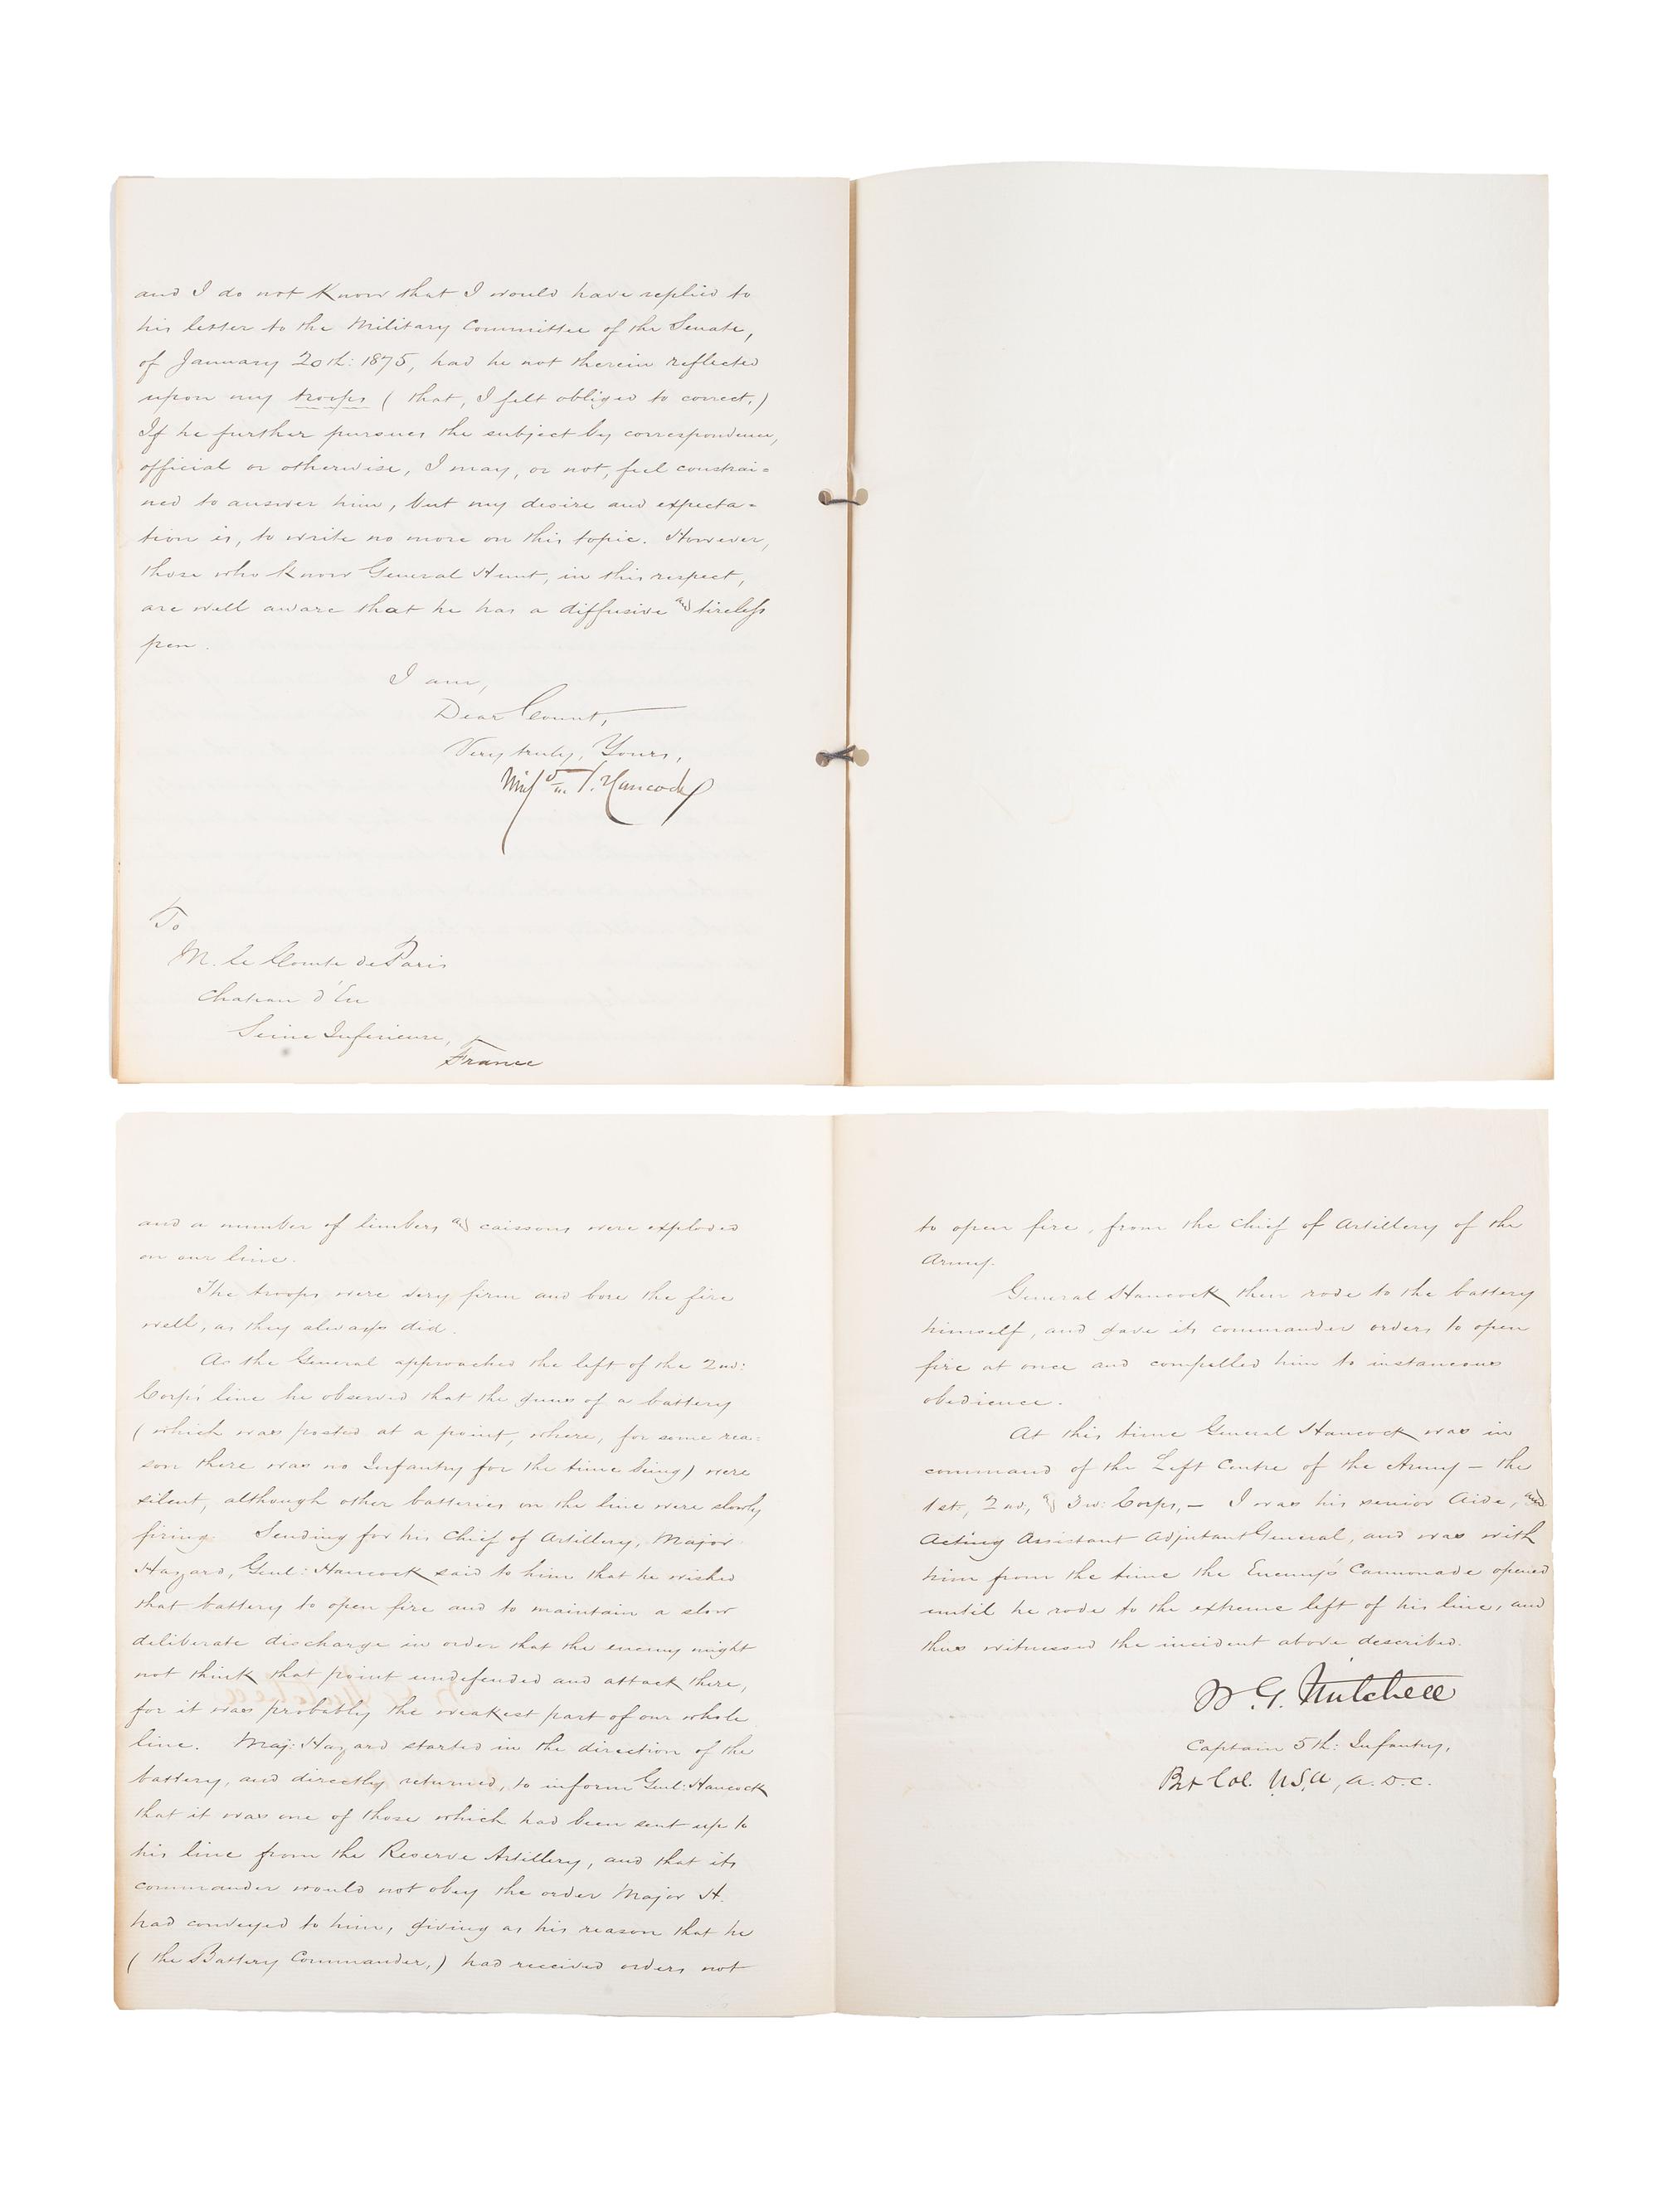 and I do not know that I would have replied to
his letter to the Military Committee of the Senate,
of January 20th: 1875, had he not therein reflected
upon my troops (that, I felt obliged to correct.)
If he further pursues the subject by correspondence,
official or otherwise, I may, or not, feel constrai=
ned to answer him, but my desire and expecta=
tion is, to write no more on this topic. However,
those who know General Hunt, in this respect,
are well aware that he has a diffusive and tireless
pen.
I am,
Dear Count,
Very truly, Yours,
Winf'd S. Hancock
To
M. le Comte de Paris
Chateau d'Eu
Seine Inferieure,
France
and a number of limbers and caissons were exploded
on our line.
The troops were very firm and bore the fire
well, as they always did.
As the General approached the left of the 2nd:
Corps's line he observed that the guns of a battery
(which was posted at a point, where, for some rea=
son there was no Infantry for the time being) were
silent, although other batteries on the line were slowly
firing. Sending for his Chief of Artillery, Major
Hazard, Genl: Hancock said to him that he wished
that battery to open fire and to maintain a slow
deliberate discharge in order that the enemy might
not think that point undefended and attack there,
for it was probably the weakest part of our whole
line. Maj: Hazard started in the direction of the
battery, and directly returned, to inform Genl: Hancock
that it was one of those which had been sent up to
his line from the Reserve Artillery, and that its
commander would not obey the order Major H.
had conveyed to him, giving as his reason that he
(the Battery Commander,) had received orders not
to open fire, from the Chief of Artillery of the
Army.
General Hancock then rode to the battery
himself, and gave its commander orders to open
fire at once and compelled him to instaneous
obedience.
At this time General Hancock was in
command of the Left Centre of the Army – the
1st, 2nd, and 3rd: Corps, – I was his senior Aide, and
Acting Assistant Adjutant General, and was with
him from the time the Enemy's Cannonade opened
until he rode to the extreme left of his line, and
thus witnessed the incident above described.
W. G. Mitchell
Captain 5th: Infantry,
Bvt Col. U.S.A, A.D.C.